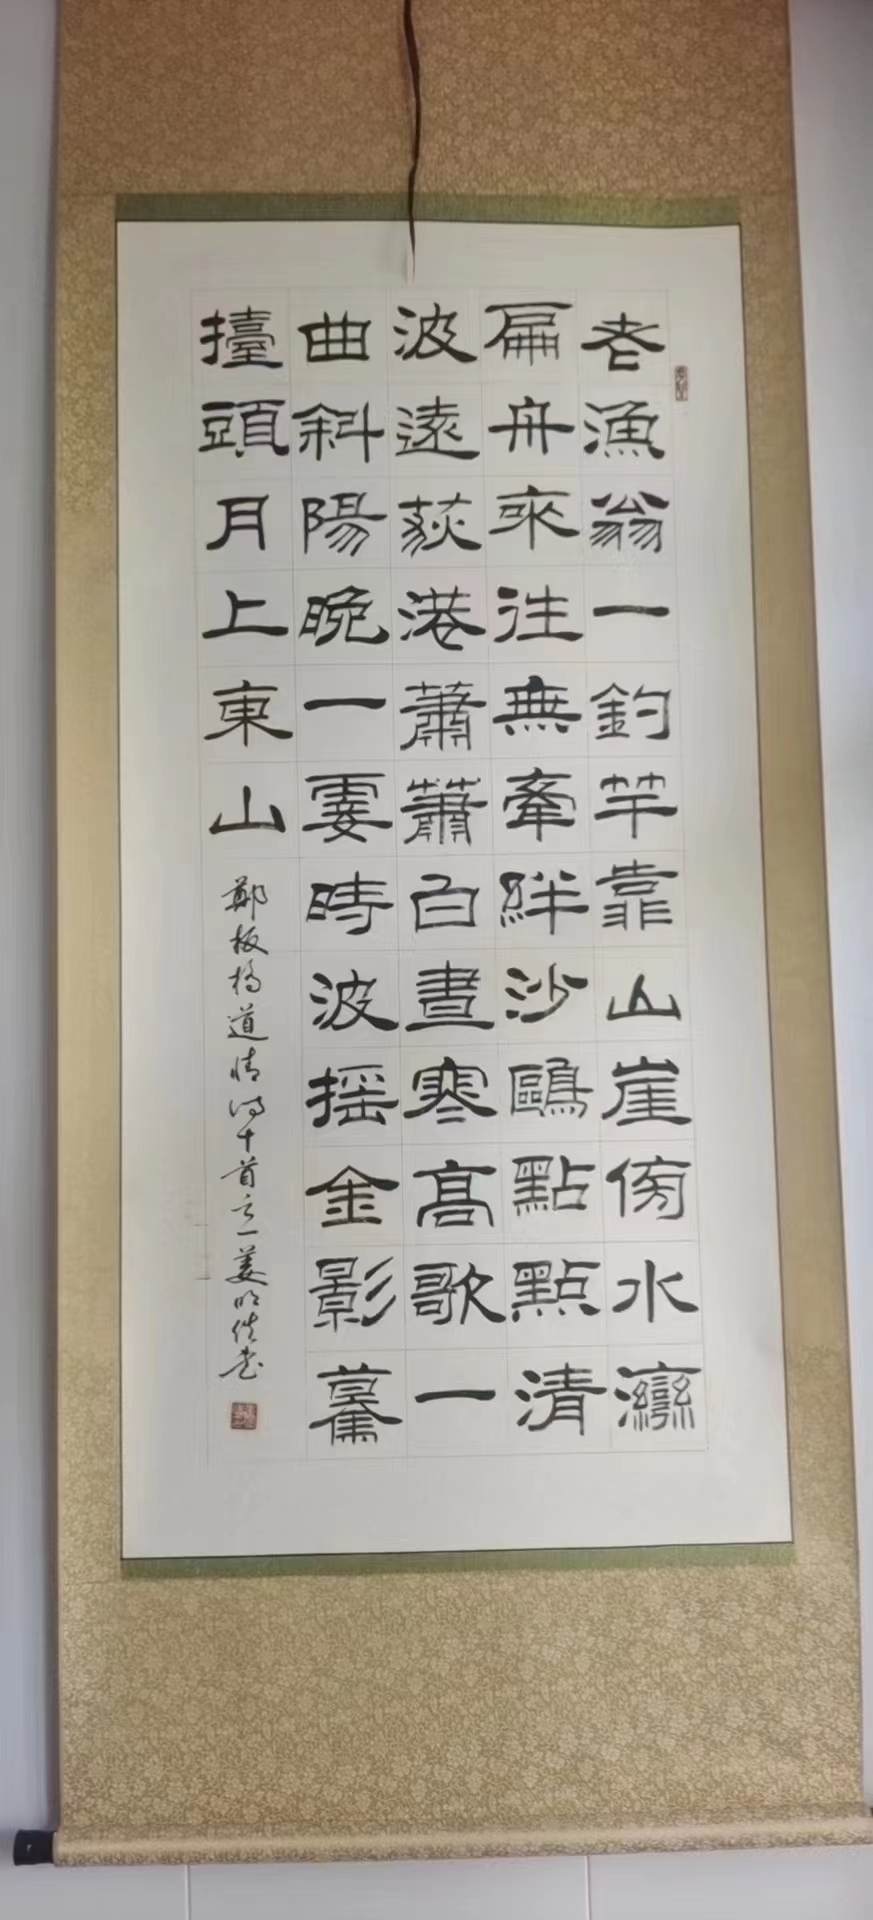 老漁翁一釣竿靠山崖傍水灣
扁舟來往無牽絆沙鷗點點清
波遠荻港蕭蕭白晝寒高歌一
曲斜陽晚一霎時波搖金影驀
擡頭月上東山
鄭板橋道情詩十首之一姜明佚書